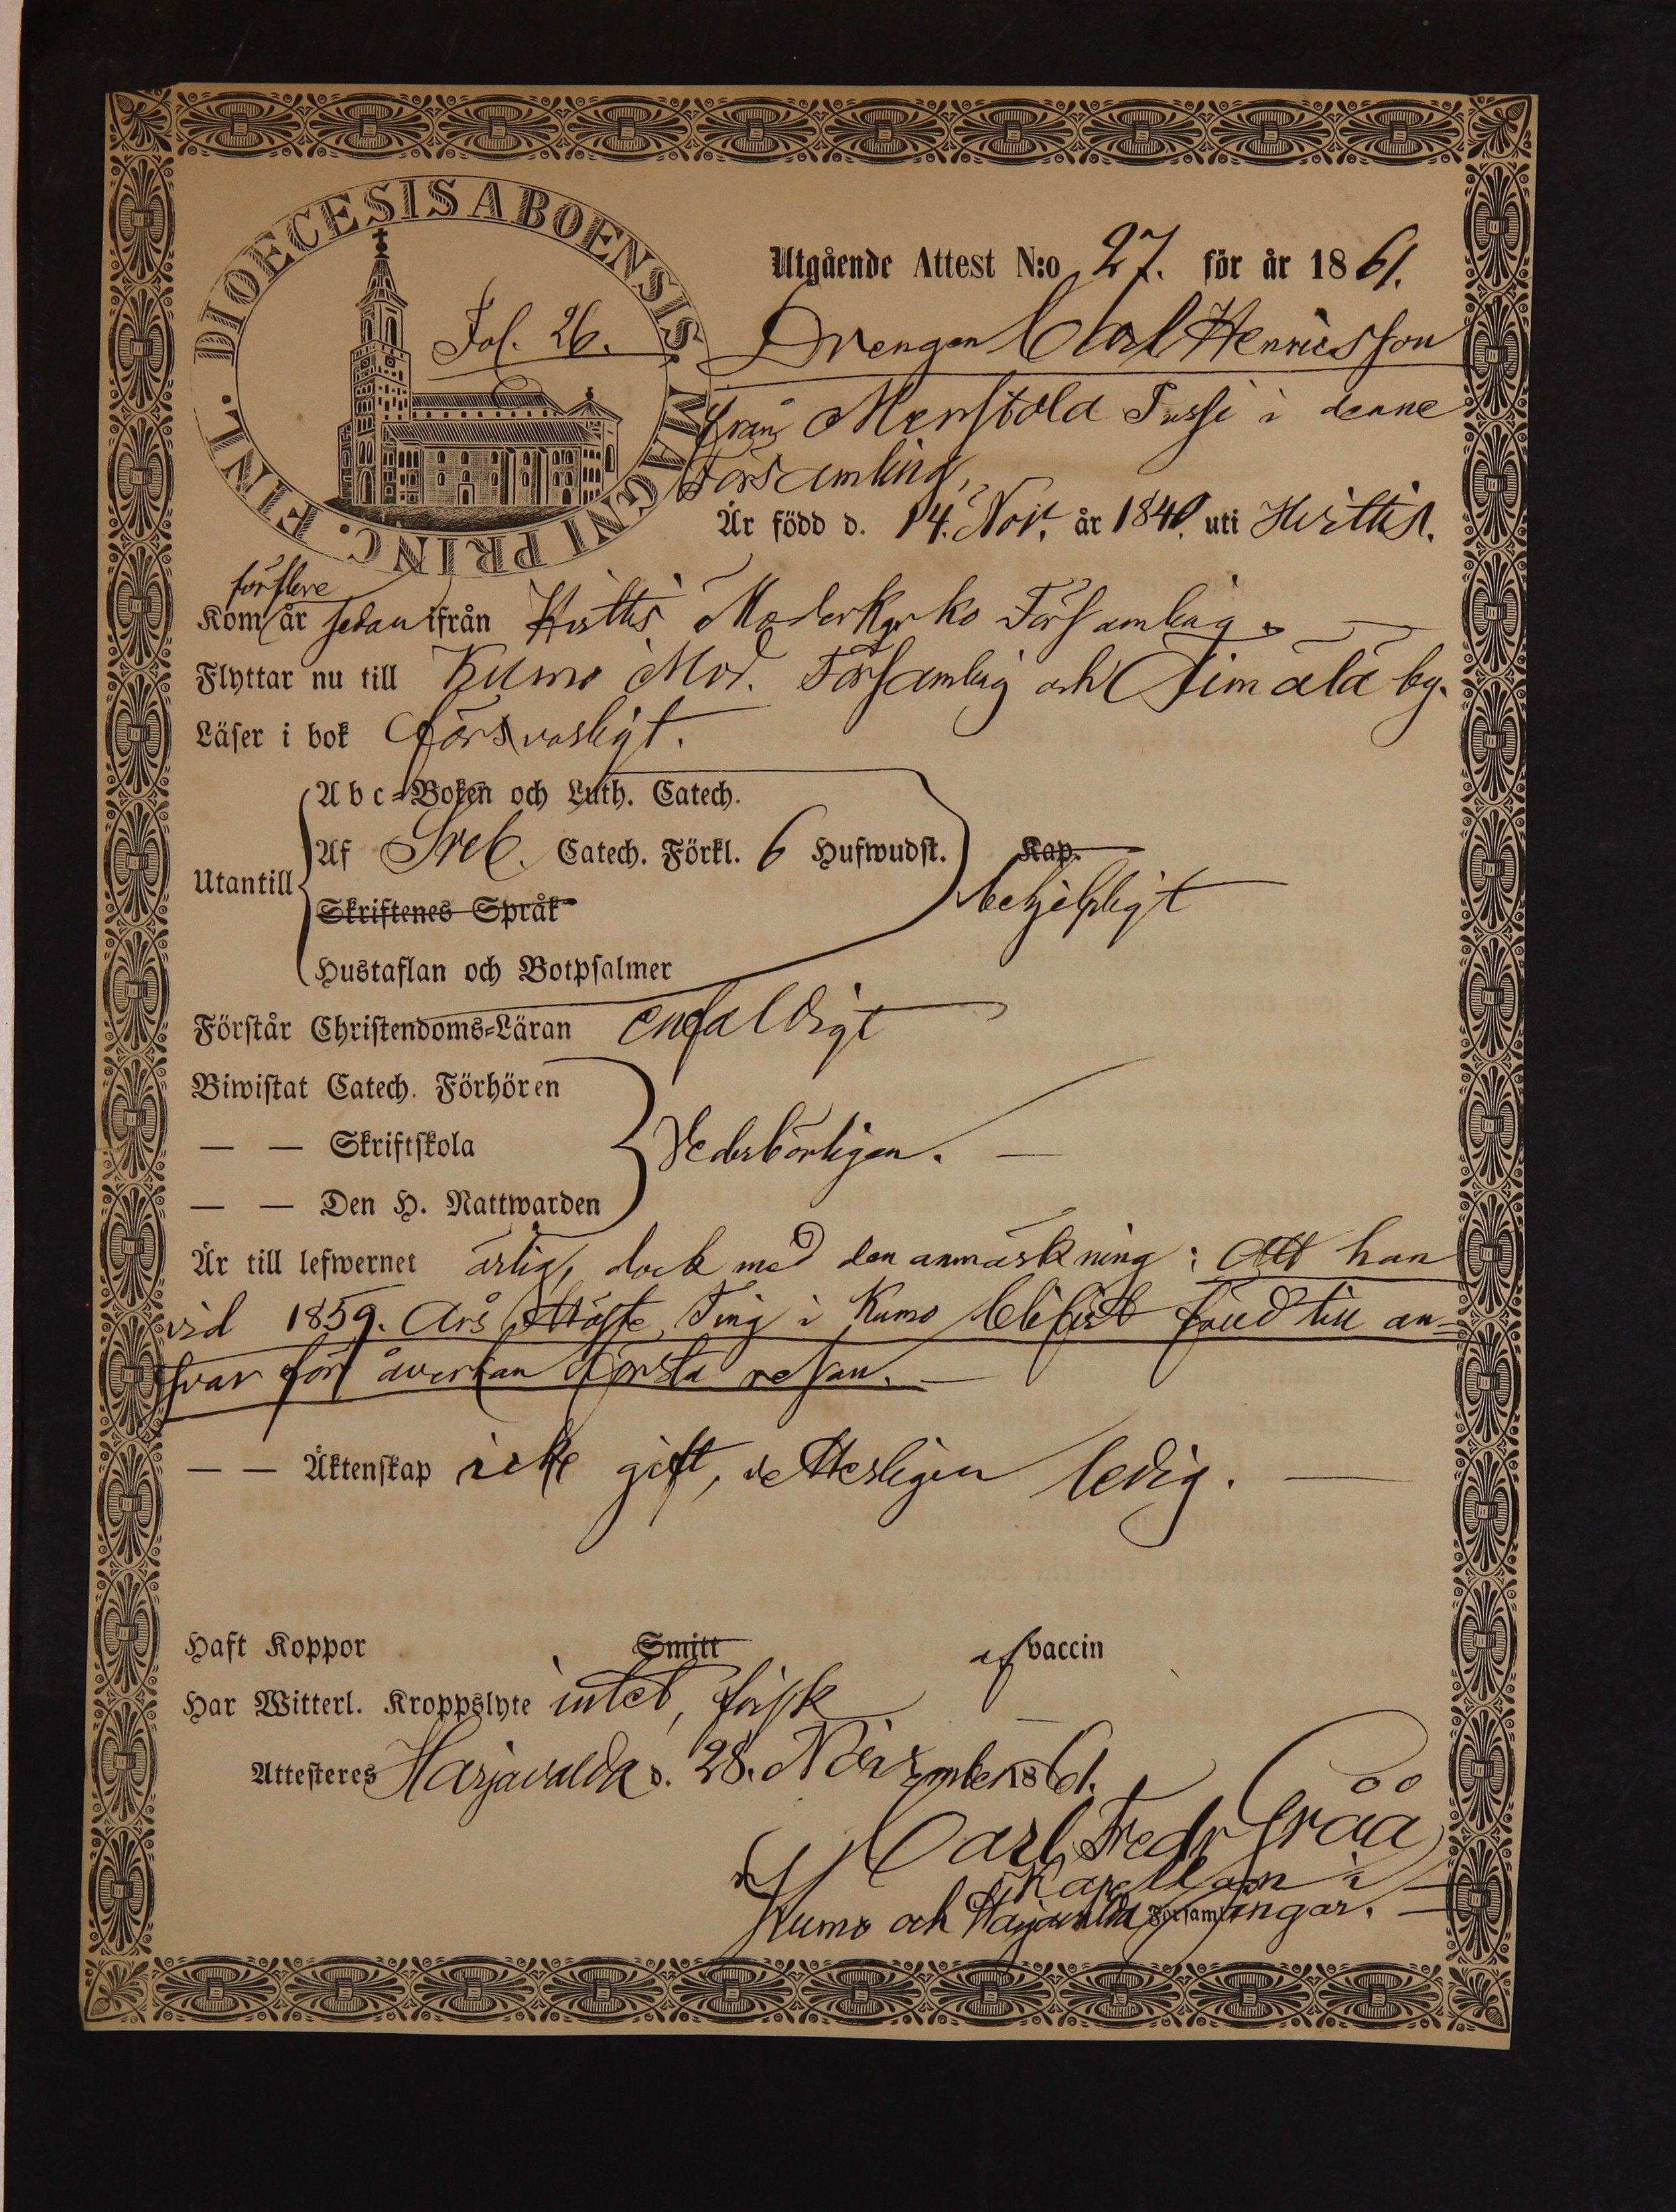 DIOECESIS ABOENSIS. MAGNI PRINC. FINL.
Fol. 26.
Utgående Attest N:o 27. för år 1861.
Drengen Carl Henricsson
från Merstola Tussi i denne
Församling,
Är född d. 14. Nov. år 1840. uti Hvittis.
för flere
Kom år sedan ifrån Hvittis Moderkyrko Församling.
Flyttar nu till Kumo Mod. Församling och by.
Läser i bok försvarligt.
Abc-Boken och Luth. Catech.
Utantill
Af Sveb. Catech. Förkl. 6 Hufwudst. Kap.
behjelpligt
Skriftenes Språk
Hustaflan och Botpsalmer
Förstår Christendoms-Läran enfaldigt
Biwistat Catech. Förhören
— — Skriftskola Vederbörligen. —
— — Den H. Nattwarden
Är till lefwernet ärlig, dock med den anmärkning: Att han
vid 1859. Års Höste Ting i Kumo blifvit fäld till an-
svar för åverkan första resan. —
— — Äktenskap icke gift, ledig. —
Haft Koppor Smitt af vaccin
Har Witterl. Kroppslyte intet, frisk
Attesteres Harjavalda d. 28. November 1861.
Carl Fredr Gråå
Kapellan i
Kumo och Harjavalda Församlingar. —